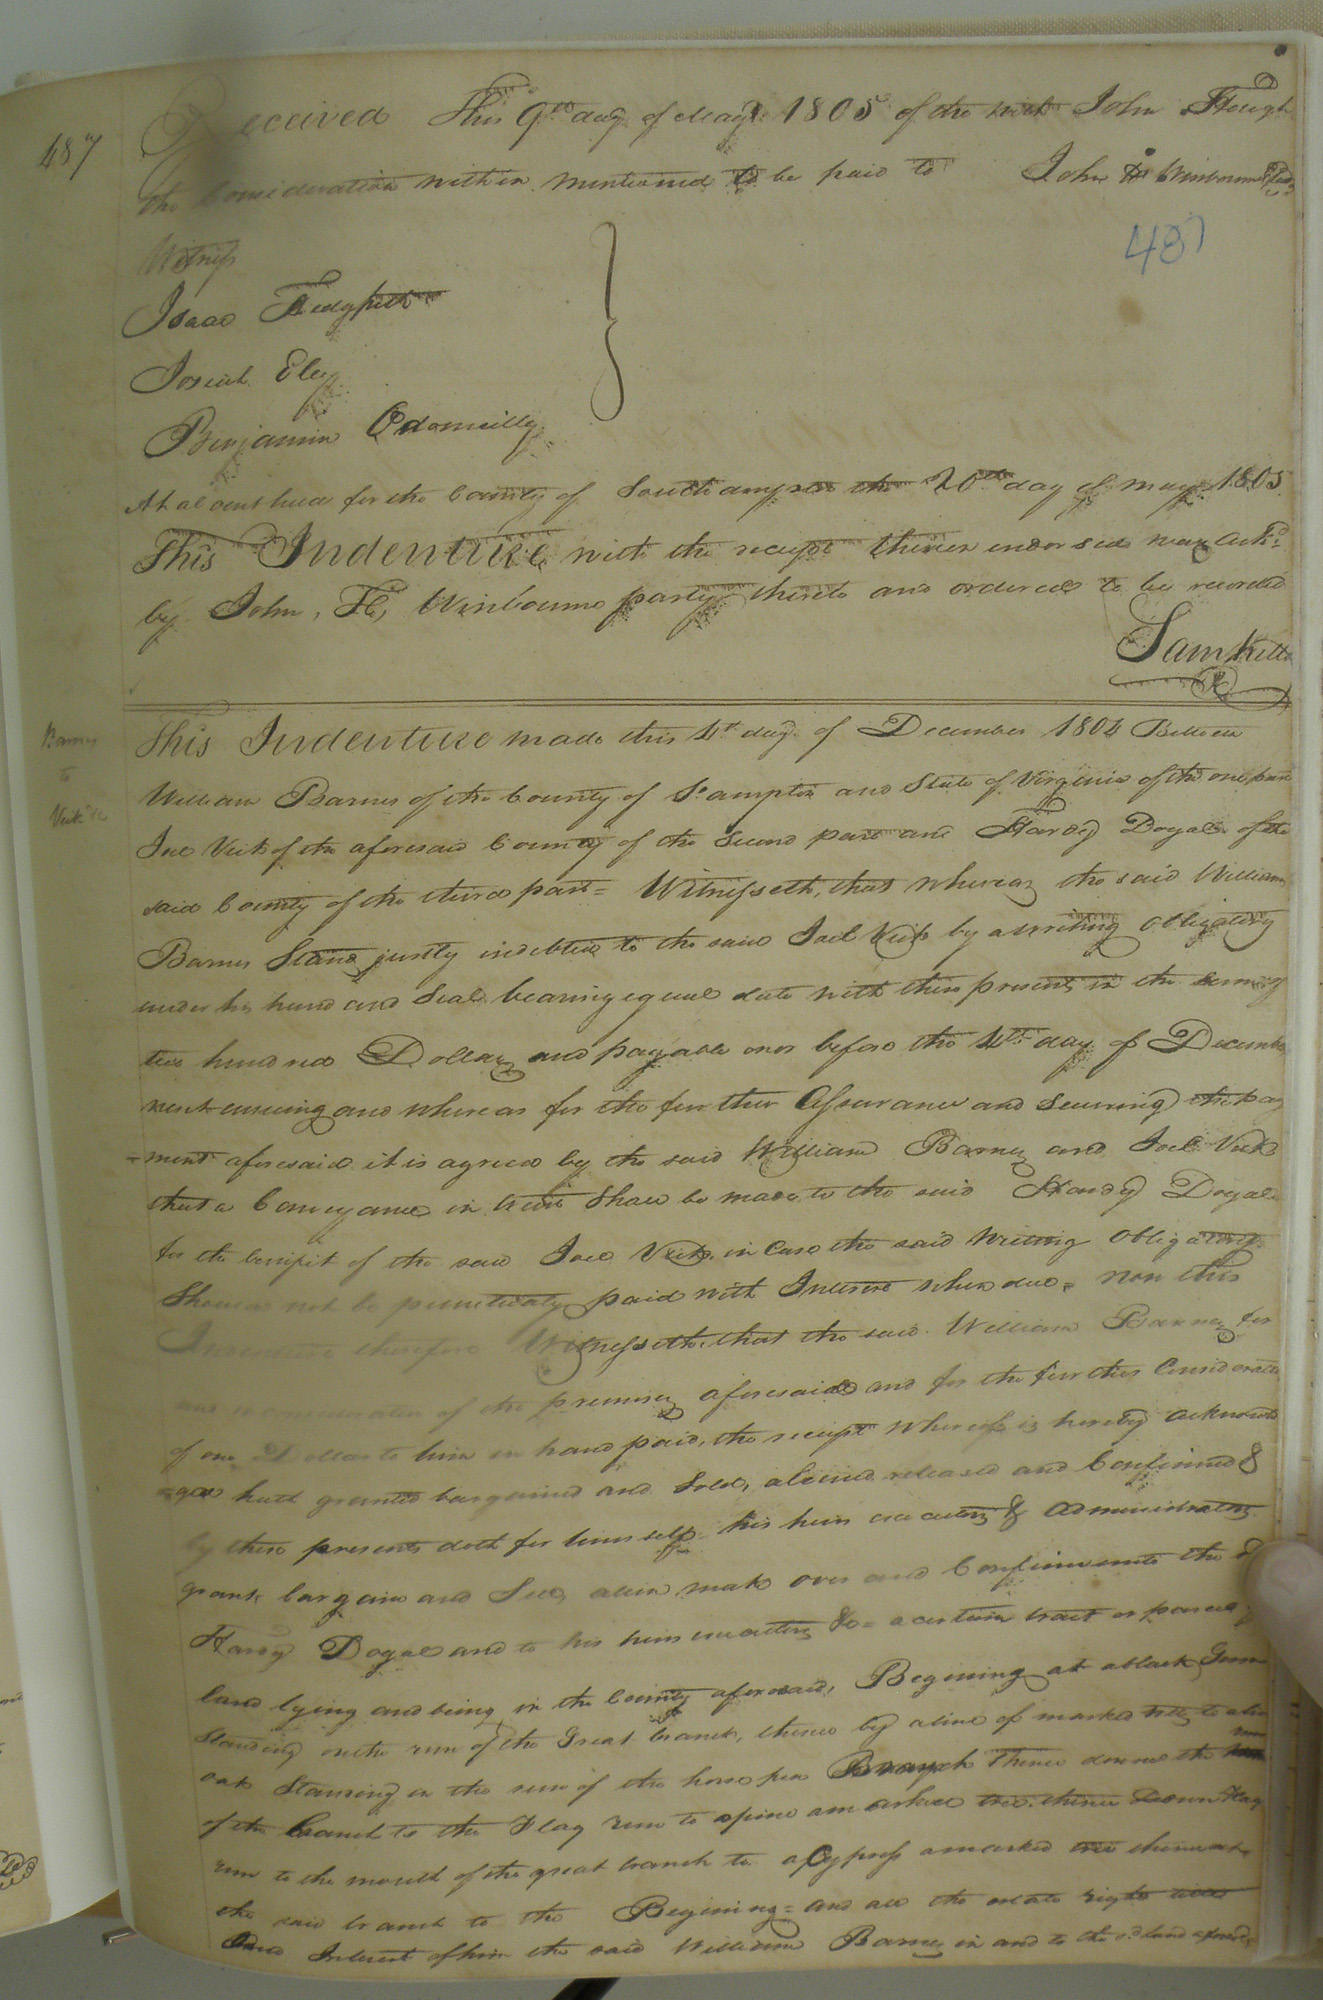 487
Received This 9th day of May 1805 of the with John Hough
the Consideration within mentioned to be paid to John H Winbourne
487
Witness
Isaac Hedgpeth
Josiah Eley
Benjamin Odonnelly
At a Court held for the County of Southampton the 20th day of may 1805
This Indenture with the receipt thereon endorsed was Ackd
by John, H, Winbourne party thereto and ordered to be recorded
Sam Kello
Barnes
to
Vick &c
This Indenture made this 4th day of December 1804 Between
William Barnes of the County of S.ampton and State of Virginia of the one part
Joel Vick of the aforesaid County of the Second part and Hardy Doyal of the
said County of the third part = Witnesseth, that whereas the said William
Barnes Stand justly indebted to the said Joel Vick by a writing obligatory
under his hand and Seal bearing equal date with these presents in the sum of
two hundred Dollars and payable on or before the 4th day of December
next ensuing and whereas for the further Assurance and Securing the pay
=ment aforesaid it is agreed by the said William Barnes and Joel Vick
that a Conveyance in trust Shall be made to the said Hardy Doyal
for the benifit of the said Joel Vick in Case the said Writing Obligatory
Should not be punctualy paid with Interest when due = now this
Indenture therefore Witnesseth, that the said William Barnes for
and in consideration of the premises aforesaid and for the further Consideration
of one Dollar to him in hand paid, the receipt whereof is hereby acknowled
=ged hath granted bargained and Sold, aliened released and Confirmed &
by these presents doth for himself his heirs executors & administrators
grant, bargain and Sell, alien make over and Confirm unto the sd
Hardy Doyal and to his heirs executors &c = a certain tract or parcel of
land lying and being in the County aforesaid, Begining at a black Gum
Standing on the run of the Great branch, thence by a line of marked trees to a
oak Standing in the run of the horse pen Branch Thence down the run
of the branch to the Flag run to a pine a marked tree thence Down Flag
run to the mouth of the great branch to a Cypress a marked tree thence
the said branch to the Begining = and all the estate right title
and Interest of him the said William Barnes in and to the sd land aforesd